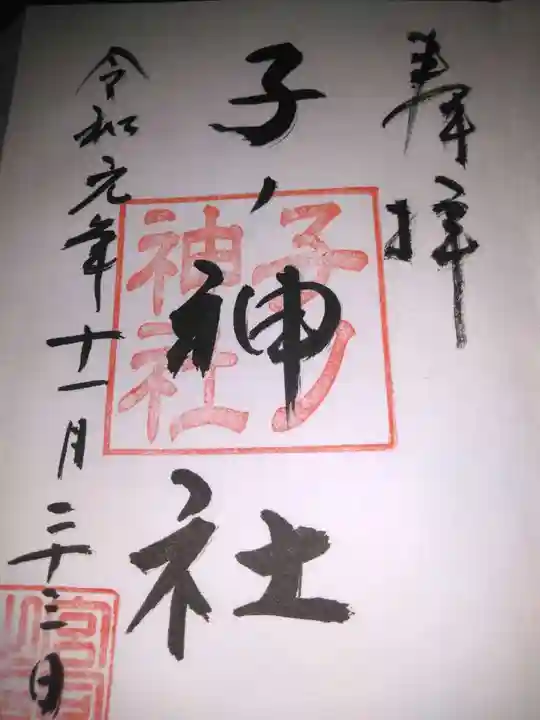 奉拝
子ノ神社
子ノ
神社
令和元年十一月二十三日